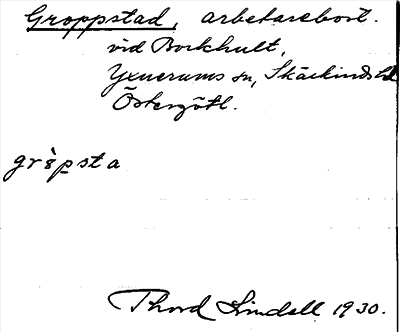 Groppstad, arbetarebost.
vid Borkhult,
Yxnerums sn, Skärkinds hd
Östergötl.
gròpsta
Thord Lindell 1930.